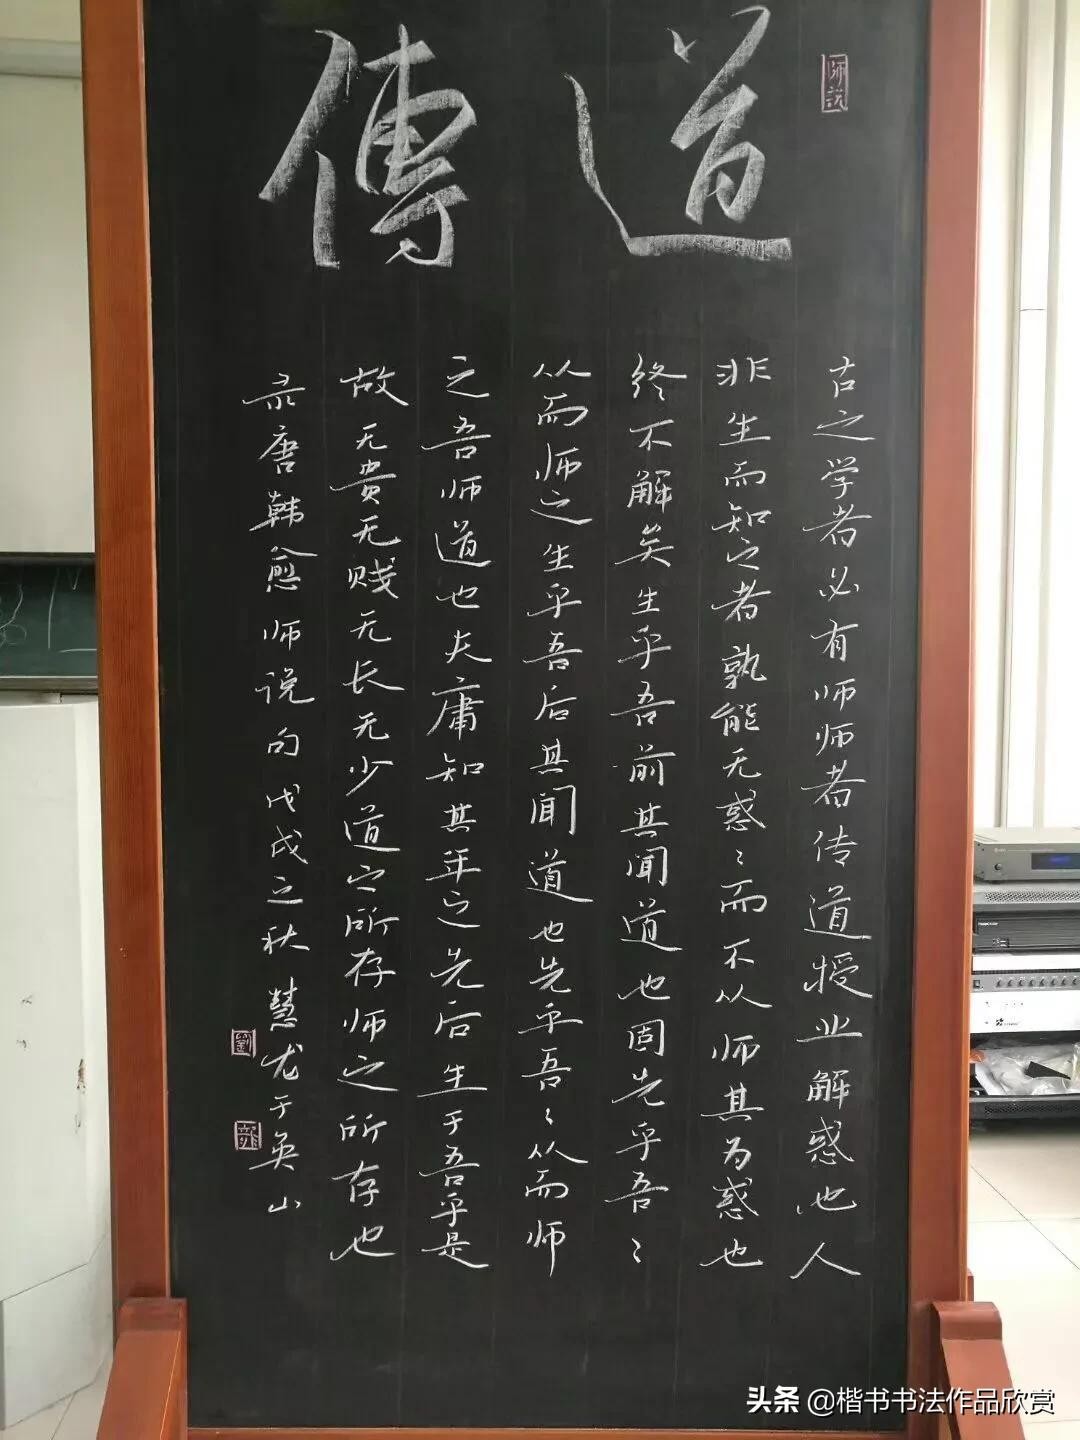 傳道
师说
古之学者必有师师者传道授业解惑也人
非生而知之者孰能无惑〻而不从师其为惑也
终不解矣生乎吾前其闻道也固先乎吾〻
从而师之生乎吾后其闻道也先乎吾〻从而师
之吾师道也夫庸知其年之先后生于吾乎是
故无贵无贱无长无少道之所存师之所存也
录唐韩愈师说句戊戌之秋慧龙于英山
劉
头条 @楷书书法作品欣赏